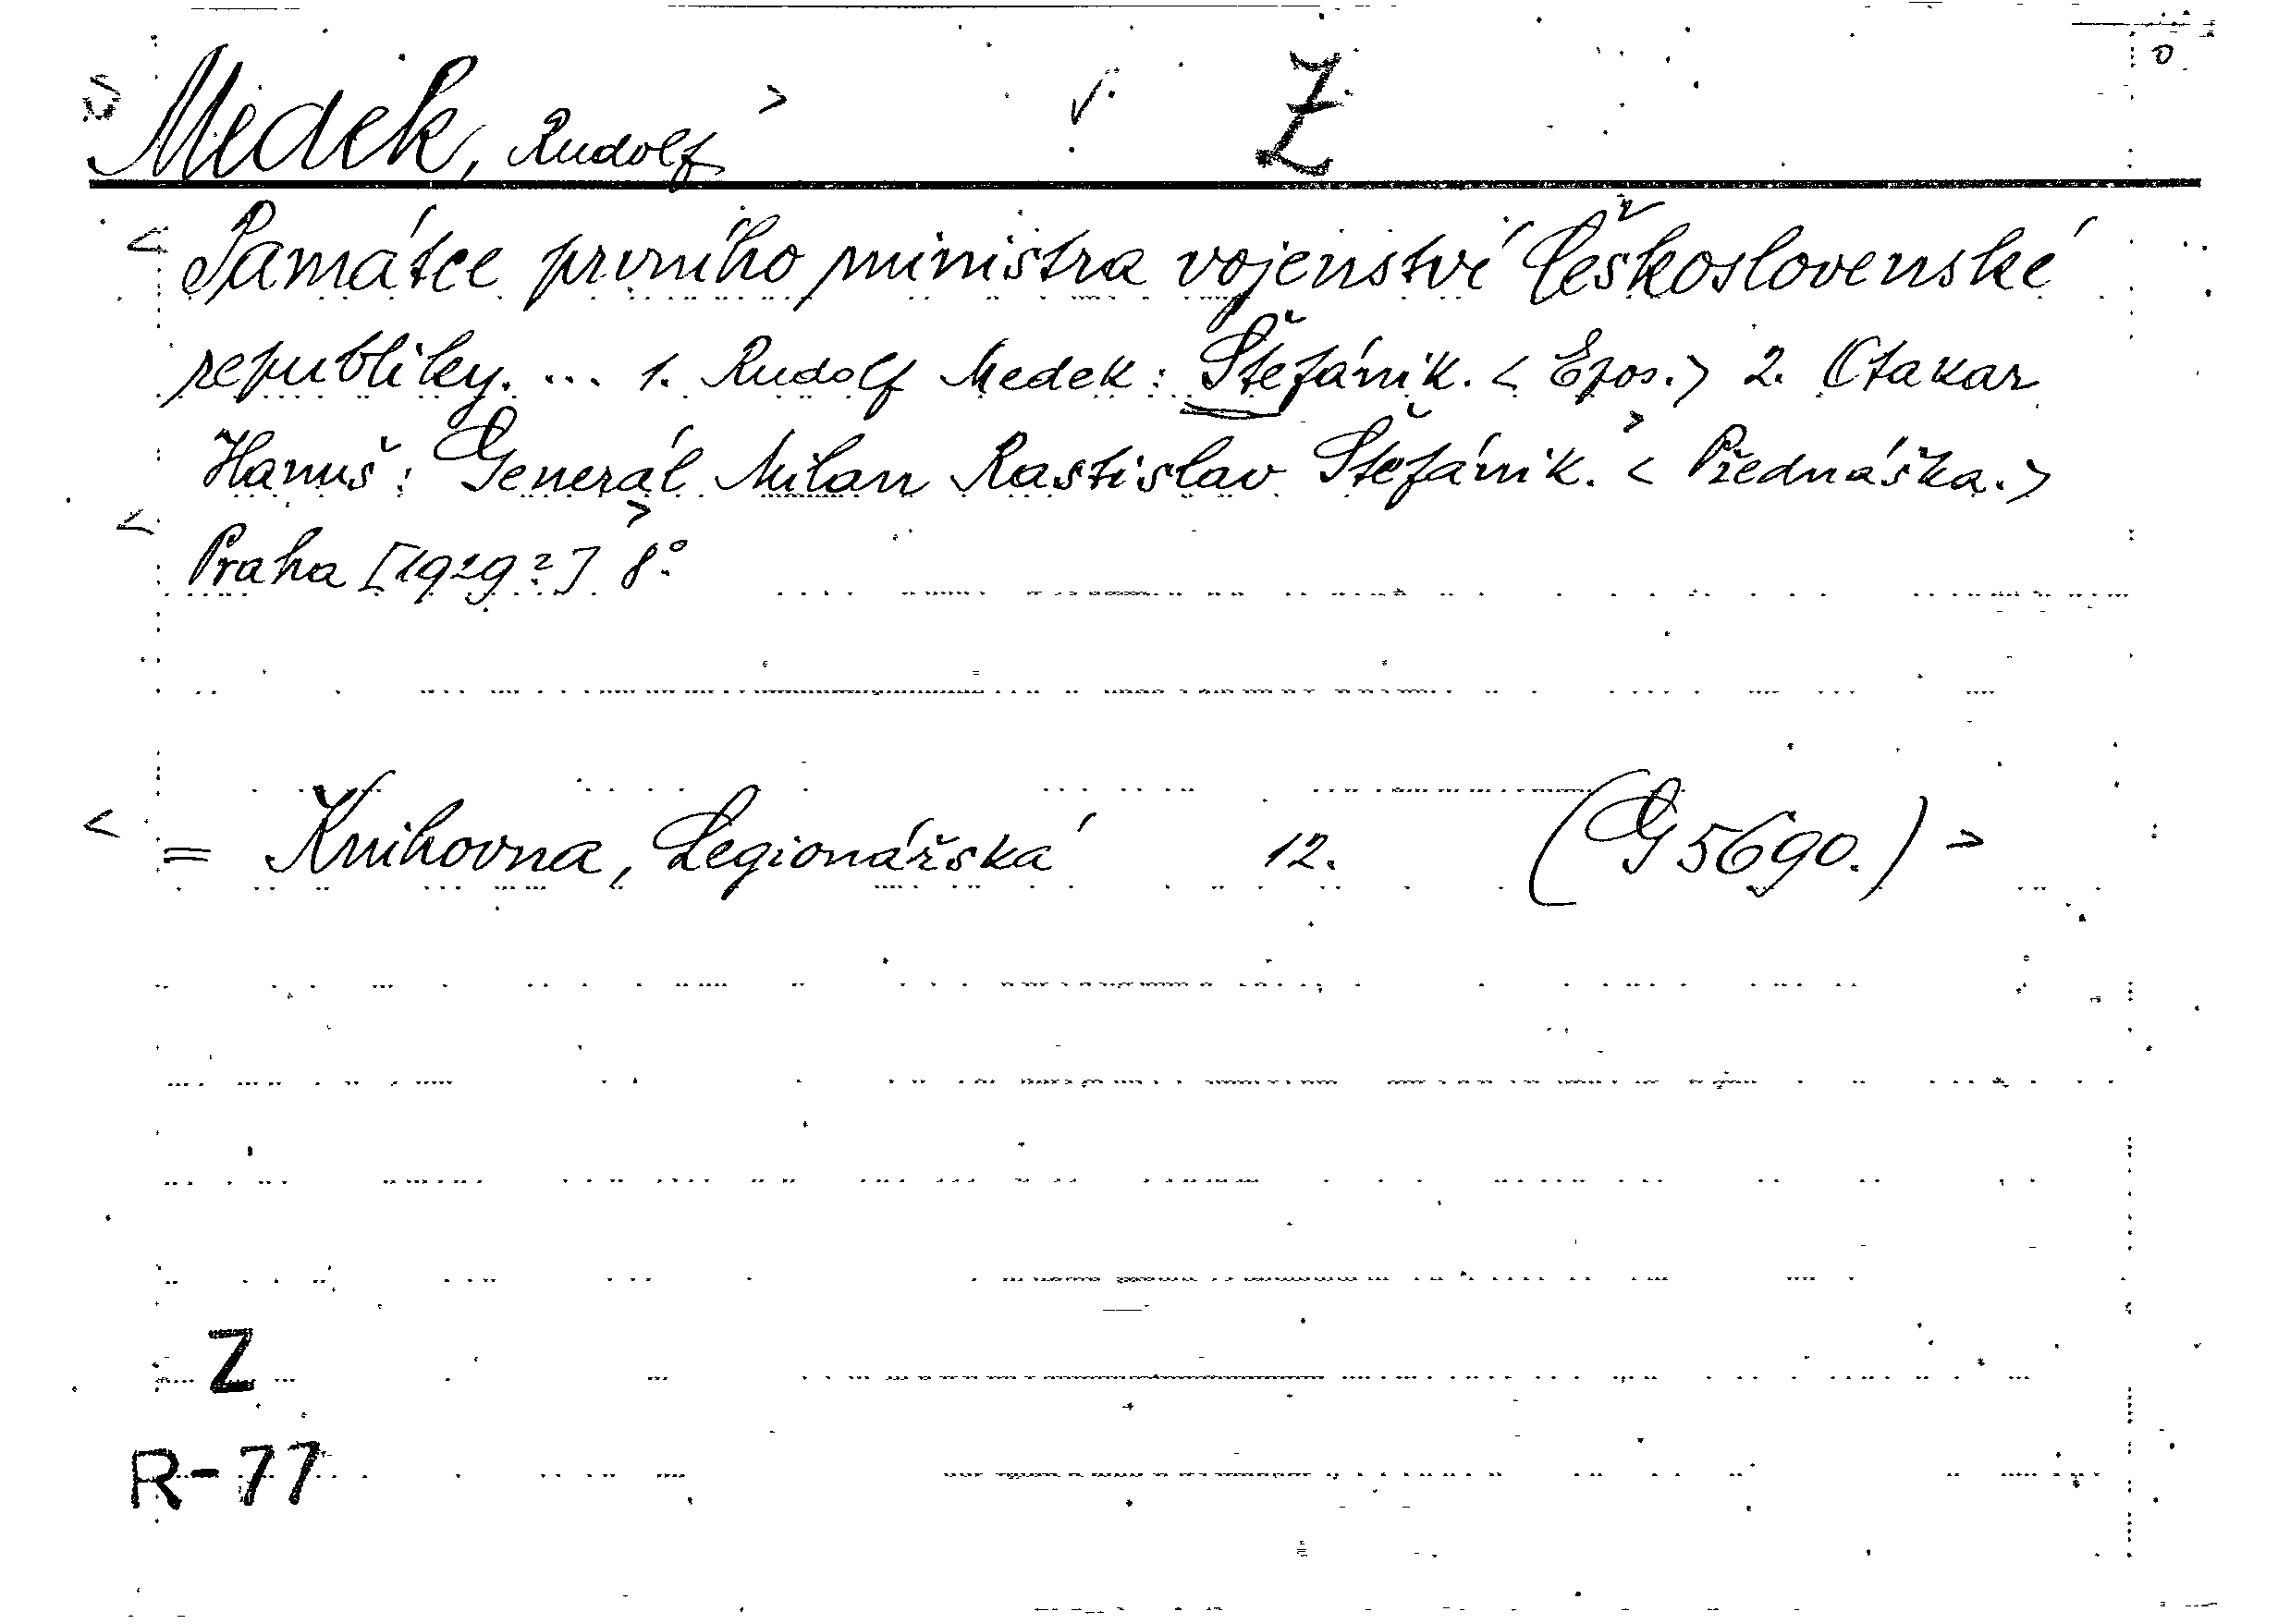 Medek, Rudolf > √. Z
< Památce prvního ministra vojenství Československé
republiky. ... 1. Rudolf Medek: Štefánik. < Epos.> 2. Otakar
Hanuš: Generál Milan Rastislav Štefánik.> < Přednáška.>
< Praha [1929?]> 8°
< = Knihovna, Legionářská 12. (G 5690.) >
Z
R-77